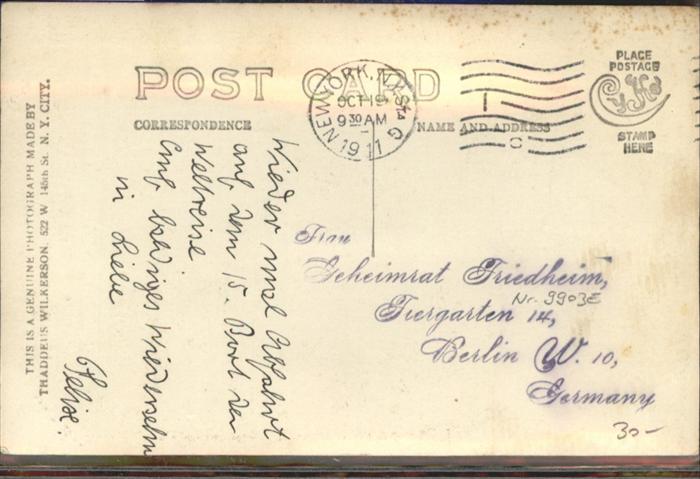 POST CARD
CORRESPONDENCE
NAME AND ADDRESS
PLACE
POSTAGE
STAMP
HERE
NEW YORK, N.Y. STA G
OCT 19
9 30 AM
1911
THIS IS A GENUINE PHOTOGRAPH MADE BY
THADDEUS WILKERSON. 522 W 148th St. N. Y. CITY.
Wieder mal Abfahrt
auf dem 15. Boot der
Weltreise.
Auf baldiges Wiedersehn
in Liebe
Felix.
Frau
Geheimrat Friedheim,
Nr. 9903E
Tiergarten 14,
Berlin W. 10,
Germany
30-